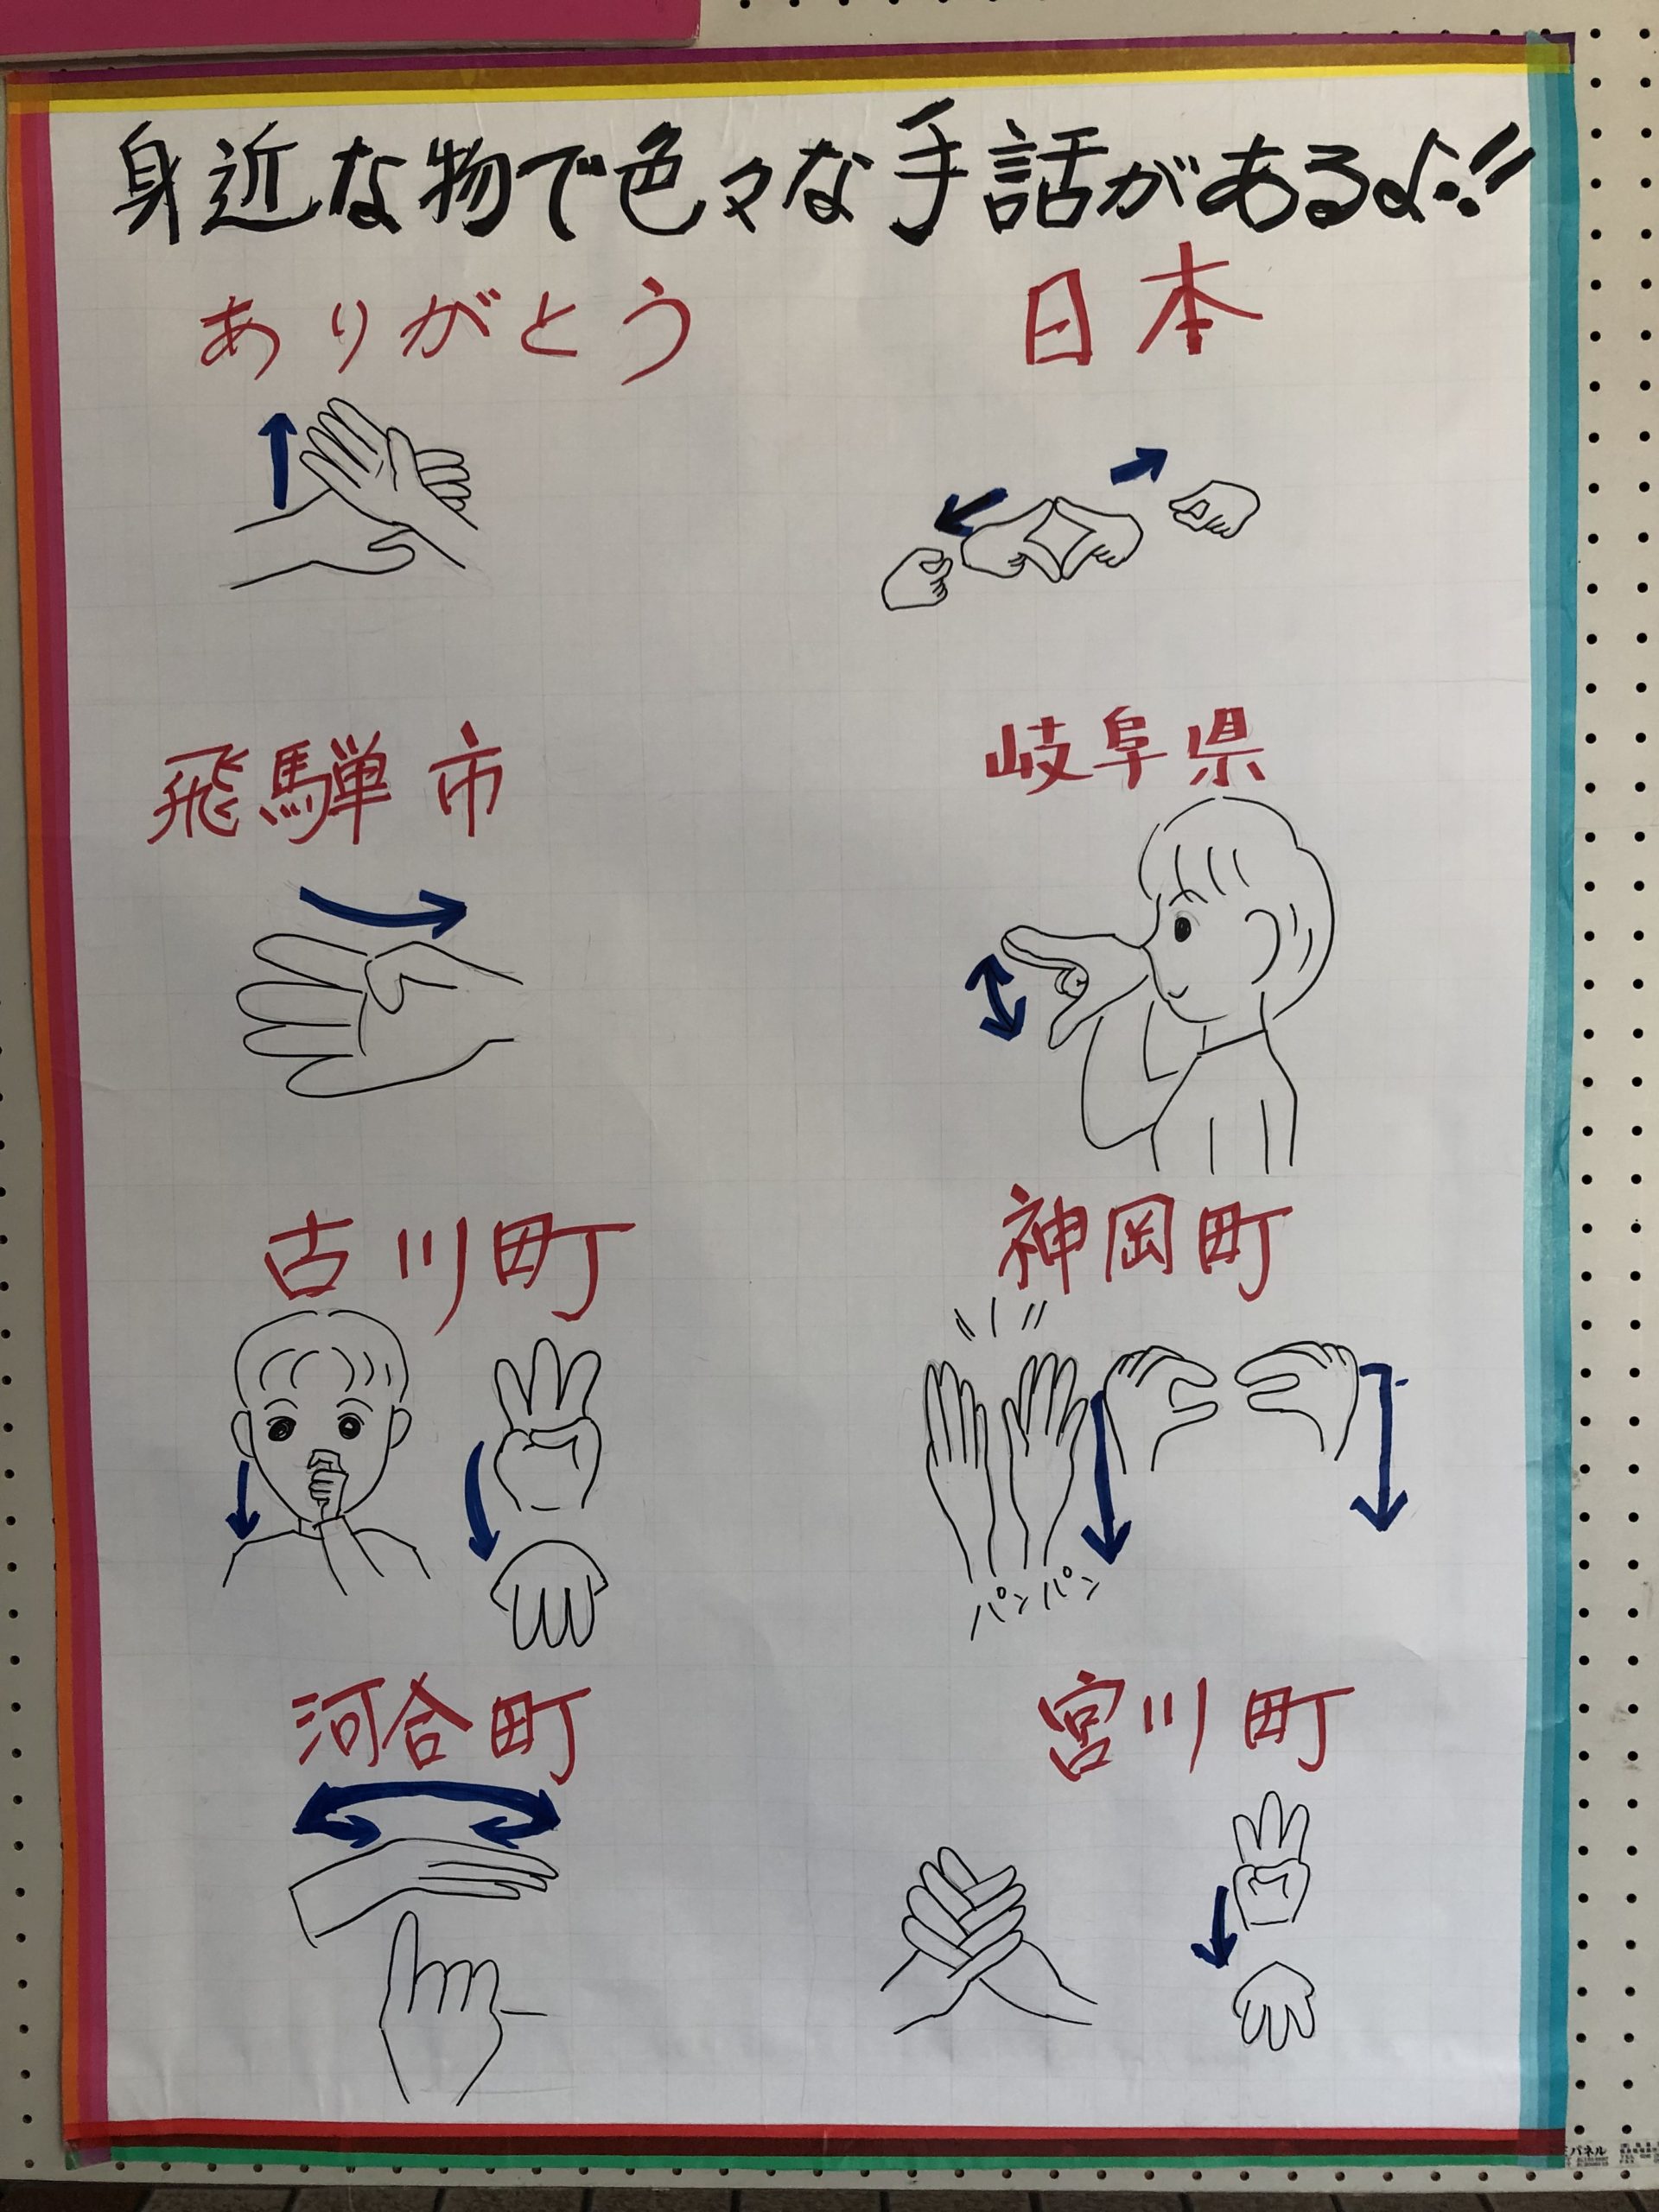 身近な物で色々な手話があるよ!!
ありがとう
日本
飛騨市
岐阜県
古川町
神岡町
パンパン
河合町
宮川町
パネル